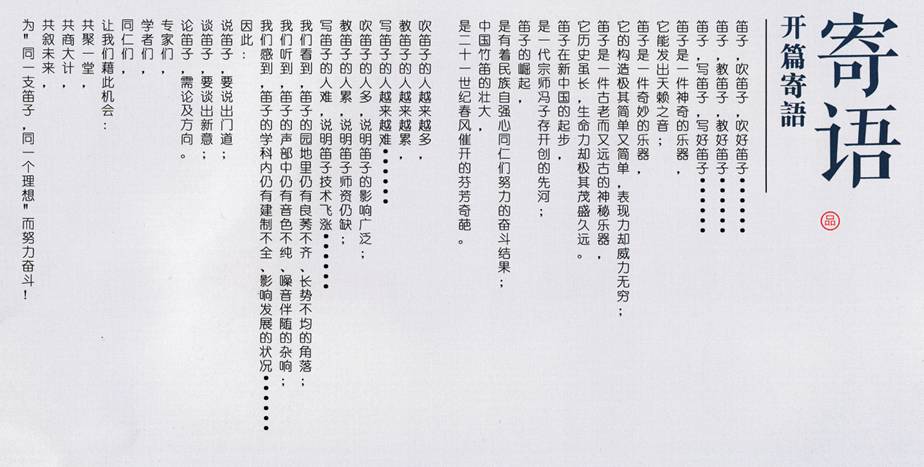 寄语
开篇寄語
品
笛子，吹笛子，吹好笛子•••••
笛子，教笛子，教好笛子•••••
笛子，写笛子，写好笛子•••••
笛子是一件神奇的乐器，
它能发出天赖之音；
笛子是一件奇妙的乐器，
它的构造极其简单又简单，表现力却威力无穷；
笛子是一件古老而又远古的神秘乐器，
它历史虽长，生命力却极其茂盛久远。
笛子在新中国的起步，
是一代宗师冯子存开创的先河；
笛子的崛起，
是有着民族自强心同仁们努力的奋斗结果；
中国竹笛的壮大，
是二十一世纪春风催开的芬芳奇葩。
吹笛子的人越来越多，
教笛子的人越来越累，
写笛子的人越来越难•••••
吹笛子的人多，说明笛子的影响广泛；
教笛子的人累，说明笛子师资仍缺；
写笛子的人难，说明笛子技术飞涨•••••
我们看到，笛子的园地里仍有良莠不齐、长势不均的角落；
我们听到，笛子的声部中仍有音色不纯、噪音伴随的杂响；
我们感到，笛子的学科内仍有建制不全、影响发展的状况•••••
因此：
说笛子，要说出门道；
谈笛子，要谈出新意；
论笛子，需论及方向。
专家们，
学者们，
同仁们，
让我们藉此机会：
共聚一堂
共商大计，
共叙未来，
为"同一支笛子，同一个理想"而努力奋斗！